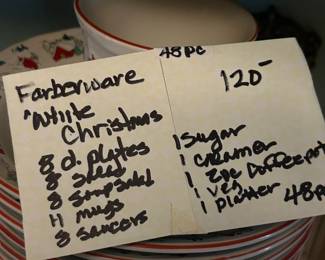 Farberware
"White
Christmas
8 d. plates
8 salad
8 soup/salad
11 mugs
8 saucers
48pc
120-
1 sugar
1 creamer
1 2pc coffeepot
1 veg
1 platter 48pc